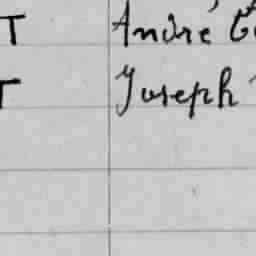 T André
T Joseph